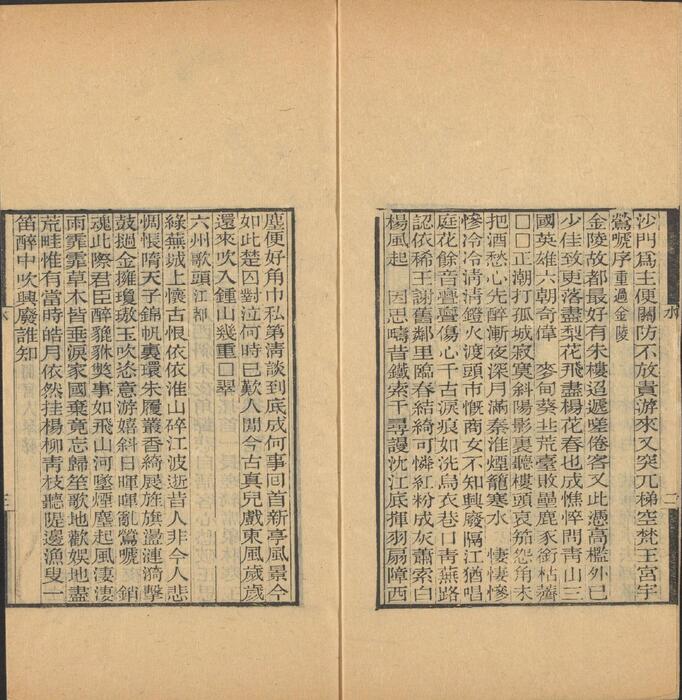 沙門爲主便關防不放貴游來又突兀梯空梵王宮宇
鶯嗁序 重過金陵
金陵故都最好有朱樓迢遞嗟倦客又此憑高檻外已
少佳致更落盡梨花飛盡楊花春也成憔悴問靑山三
國英雄六朝奇偉 麥甸葵丘荒臺敗壘鹿豕銜枯薺
□□正潮打孤城寂寞斜陽影裏聽樓頭哀笳怨角未
把酒愁心先醉漸夜深月滿秦淮煙籠寒水 悽悽慘
慘冷冷淸淸鐙火渡頭市慨商女不知興廢隔江猶唱
庭花餘音亹亹傷心千古淚痕如洗烏衣巷口靑蕪路
認依稀王謝舊鄰里臨春結綺可憐紅粉成灰蕭索白
楊風起 因思疇昔鐵索千尋謾沈江底揮羽扇障西
水 二
塵便好角巾私第淸談到底成何事回首新亭風景今
如此楚囚對泣何時已歎人閒今古眞兒戲東風歲歲
還來吹入鍾山幾重□翠
六州歌頭 江都
綠蕪城上懷古恨依依淮山碎江波逝昔人非今人悲
惆悵隋天子錦帆裏環朱履叢香綺展旌旗蕩漣漪擊
鼓撾金擁瓊璈玉吹恣意游嬉斜日暉暉亂鶯嗁 銷
魂此際君臣醉貔貅獘事如飛山河墜煙塵起風凄凄
雨霏霏草木皆垂淚家國棄竟忘歸笙歌地歡娛地盡
荒畦惟有當時皓月依然挂楊柳靑枝聽隄邊漁叟一
笛醉中吹興廢誰知
三